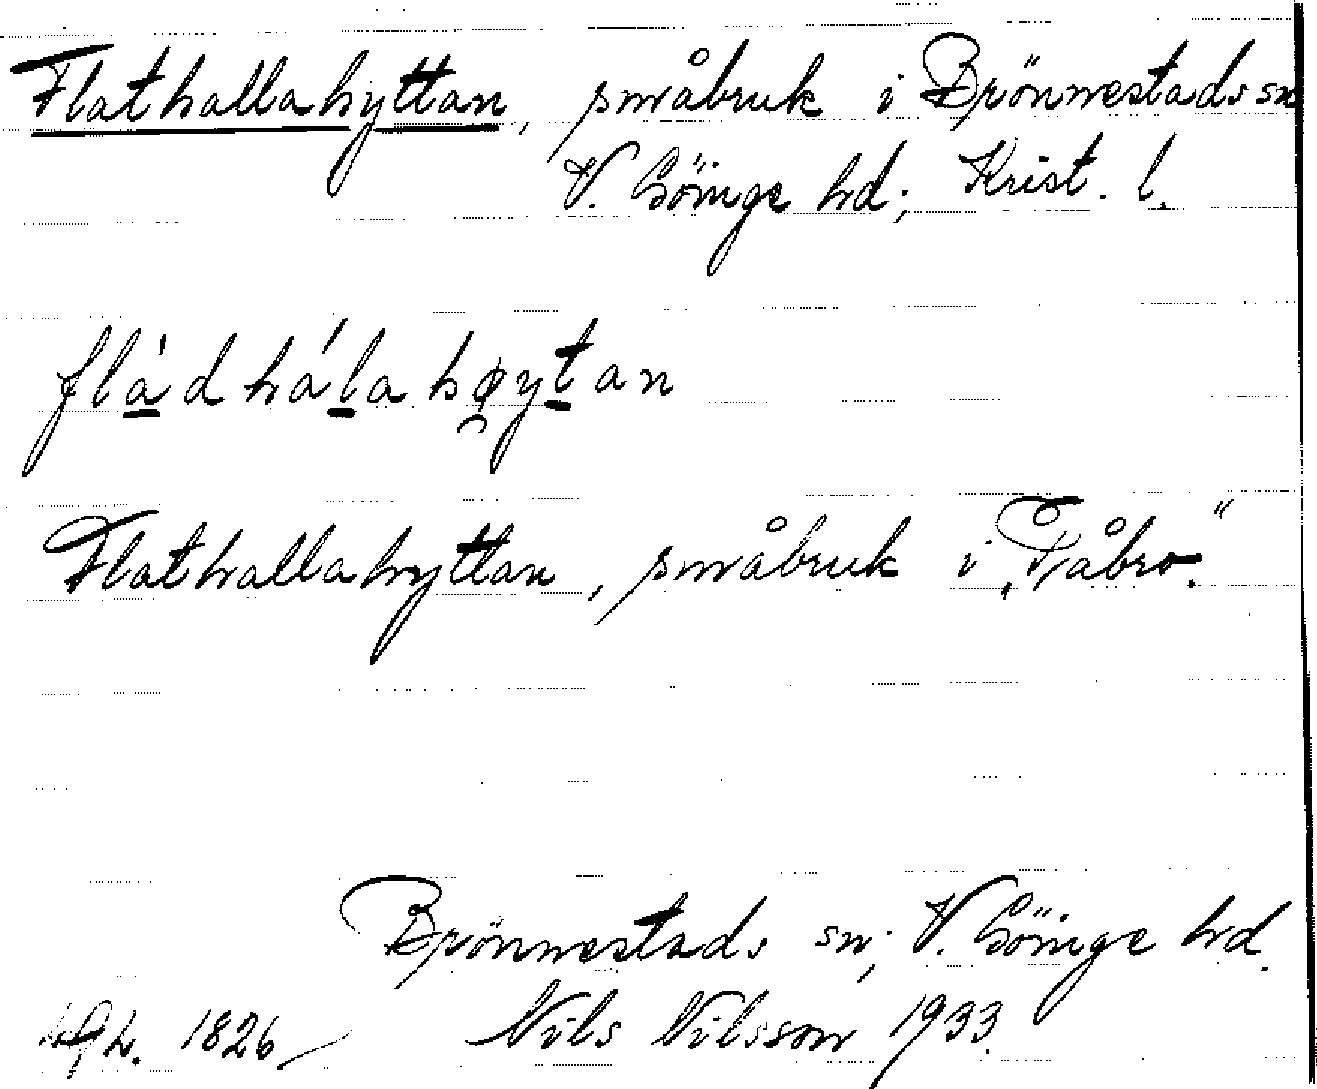 Flathallahyttan, småbruk i Brönnestads sn
V. Göinge hd; Krist. l.
flàdhálahøytan
Flathallahyttan, småbruk i „Tåbro."
Brönnestads sn; V. Göinge hd.
1826 Nils Nilsson 1933.